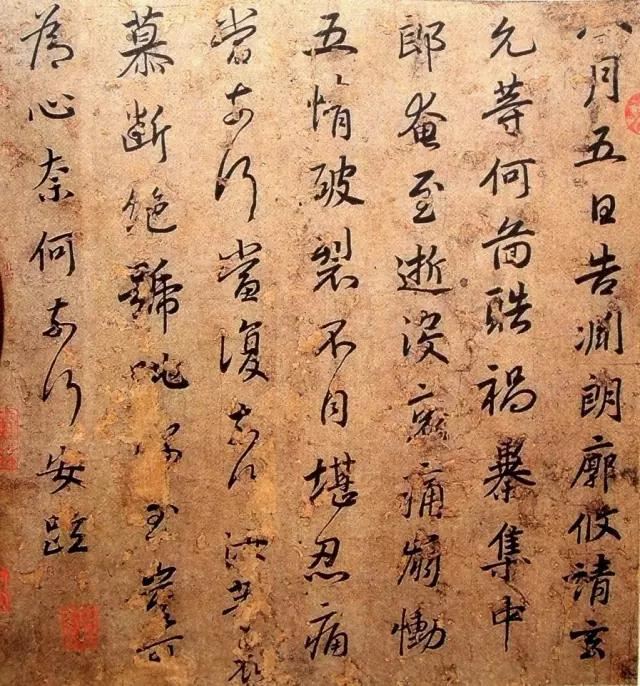 八月五日告淵朗廓攸靖玄
允等何圖酷禍暴集中
郎奄至逝沒哀痛崩慟
五情破裂不自堪忍痛
當奈何當復奈何汝等哀
慕斷絶號咷深至豈可
為心奈何奈何安疏